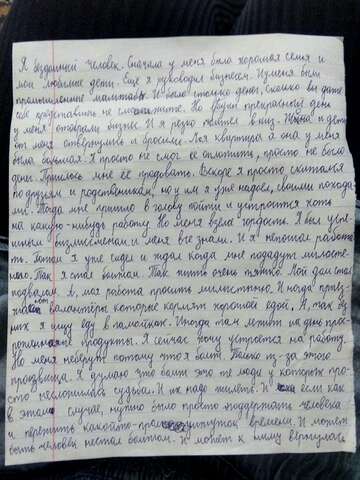 Я бездомный человек. Сначала у меня была хорошая семья и
мои любимые дети. Ещё я руководил бизнесом. У меня были
промышленные масштабы. И было столько денег, сколько вы даже
себе представить не сможите. Но один прекрасный день
у меня отобрали бизнес. И я резко потёк в низ. Жена и дети
от меня отвернулись и бросили. Моя квартира а она у меня
была большая. Я просто не смог её оплатить, просто не было
денег. Пришлось мне её продовать. Вскоре я просто скитался
по друзьям и родственникам, но и им я уже надоел, своими похода
ми. Тогда мне пришло в голову пойти и устроится хоть
на какую-нибудь работу. Но меня взела гордость. Я был успе
шным бизнессменом и меня все знали. И я непошёл работа
ть. Потом я уже сидел и ждал когда мне подадут милосте-
ню. Так я стал бомжом. Так жить очень тяжко. Мой дом стал
подвалом. А, моя работа просить милостыню. И когда приез-
жают валантёры которые кормят хорошой едой. А, так из
них я ищу еду в помойках. Иногда там лежат на дно прос-
роченные продукты. Я сейчас хочу устроется на работу.
Но меня неберут потому что я бомж. Только из-за этого
прозвища. Я думаю что бомж это те люди у которых про-
сто несложилась судьба. И их надо жилеть. И если как
в этом случае, нужно было просто поддержать человека
и пережить какойто промежуток времени. И может
быть человек нестал бомжом. И может к лицу вернулась